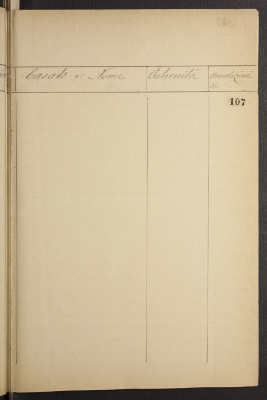 Casato e Nome Paternità Annotazioni
107